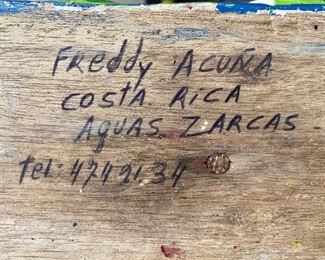 Freddy ACUÑA
COSTA RICA
AGUAS ZARCAS
tel: 4742134